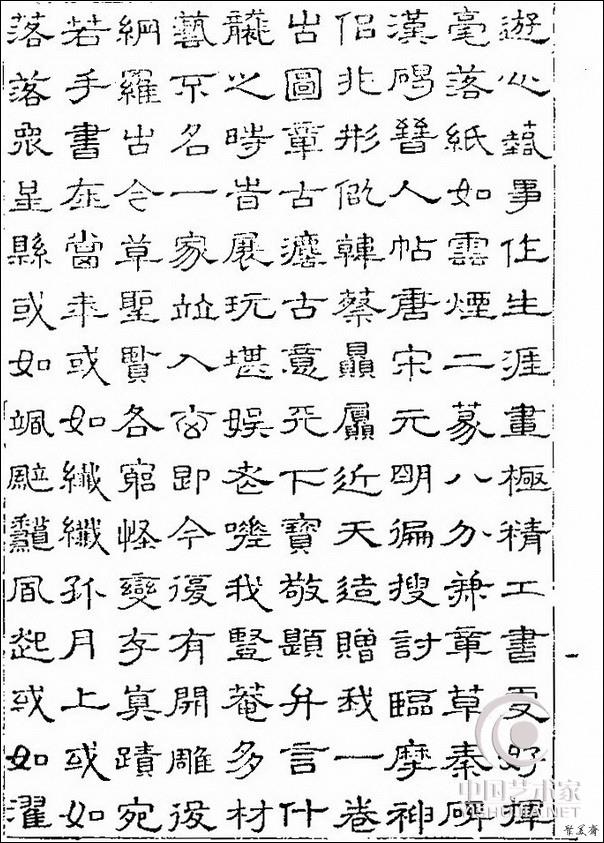 遊心藝事作生涯畫極精工書更好揮
毫落紙如雲煙二篆八分兼章草秦碑
漢碣晉人帖唐宋元明徧搜討臨摩神
佀非形似韓蔡贔屭近天造贈我一卷
古圖章古古意天下寶敬題弁言什
襲之時旹展玩堪娛老嗟我豎菴多材
藝不名一家竝入即今復有開雕後
網羅古今草聖賢各窮怪變存真蹟宛
若手書在當年或如纖纖初月上或如
落落眾星縣或如颯颯風起或如濯
中国艺术家